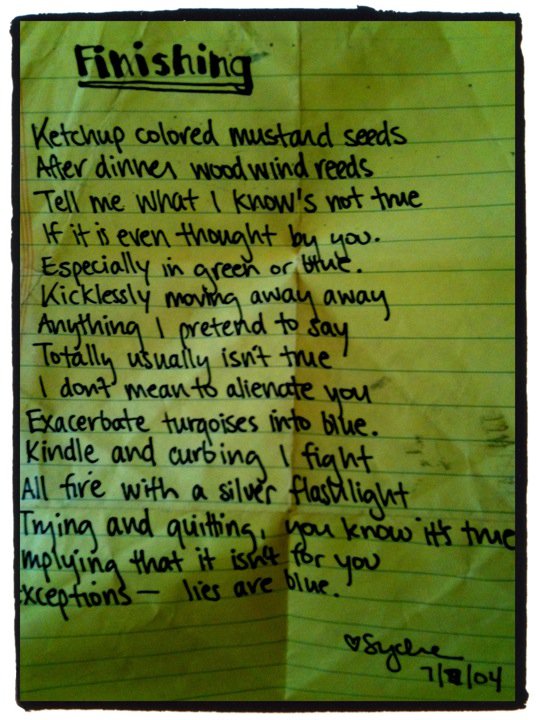 Finishing
Ketchup colored mustard seeds
After dinner woodwind reeds
Tell me what I know's not true
If it is even thought by you.
Especially in green or blue.
Kicklessly moving away away
Anything I pretend to say
Totally usually isn't true
I don't mean to alienate you
Exacerbate turqoises into blue.
Kindle and curbing I fight
All fire with a silver flashlight
Trying and quitting, you know it's true
mplying that it isn't for you
xceptions — lies are blue.